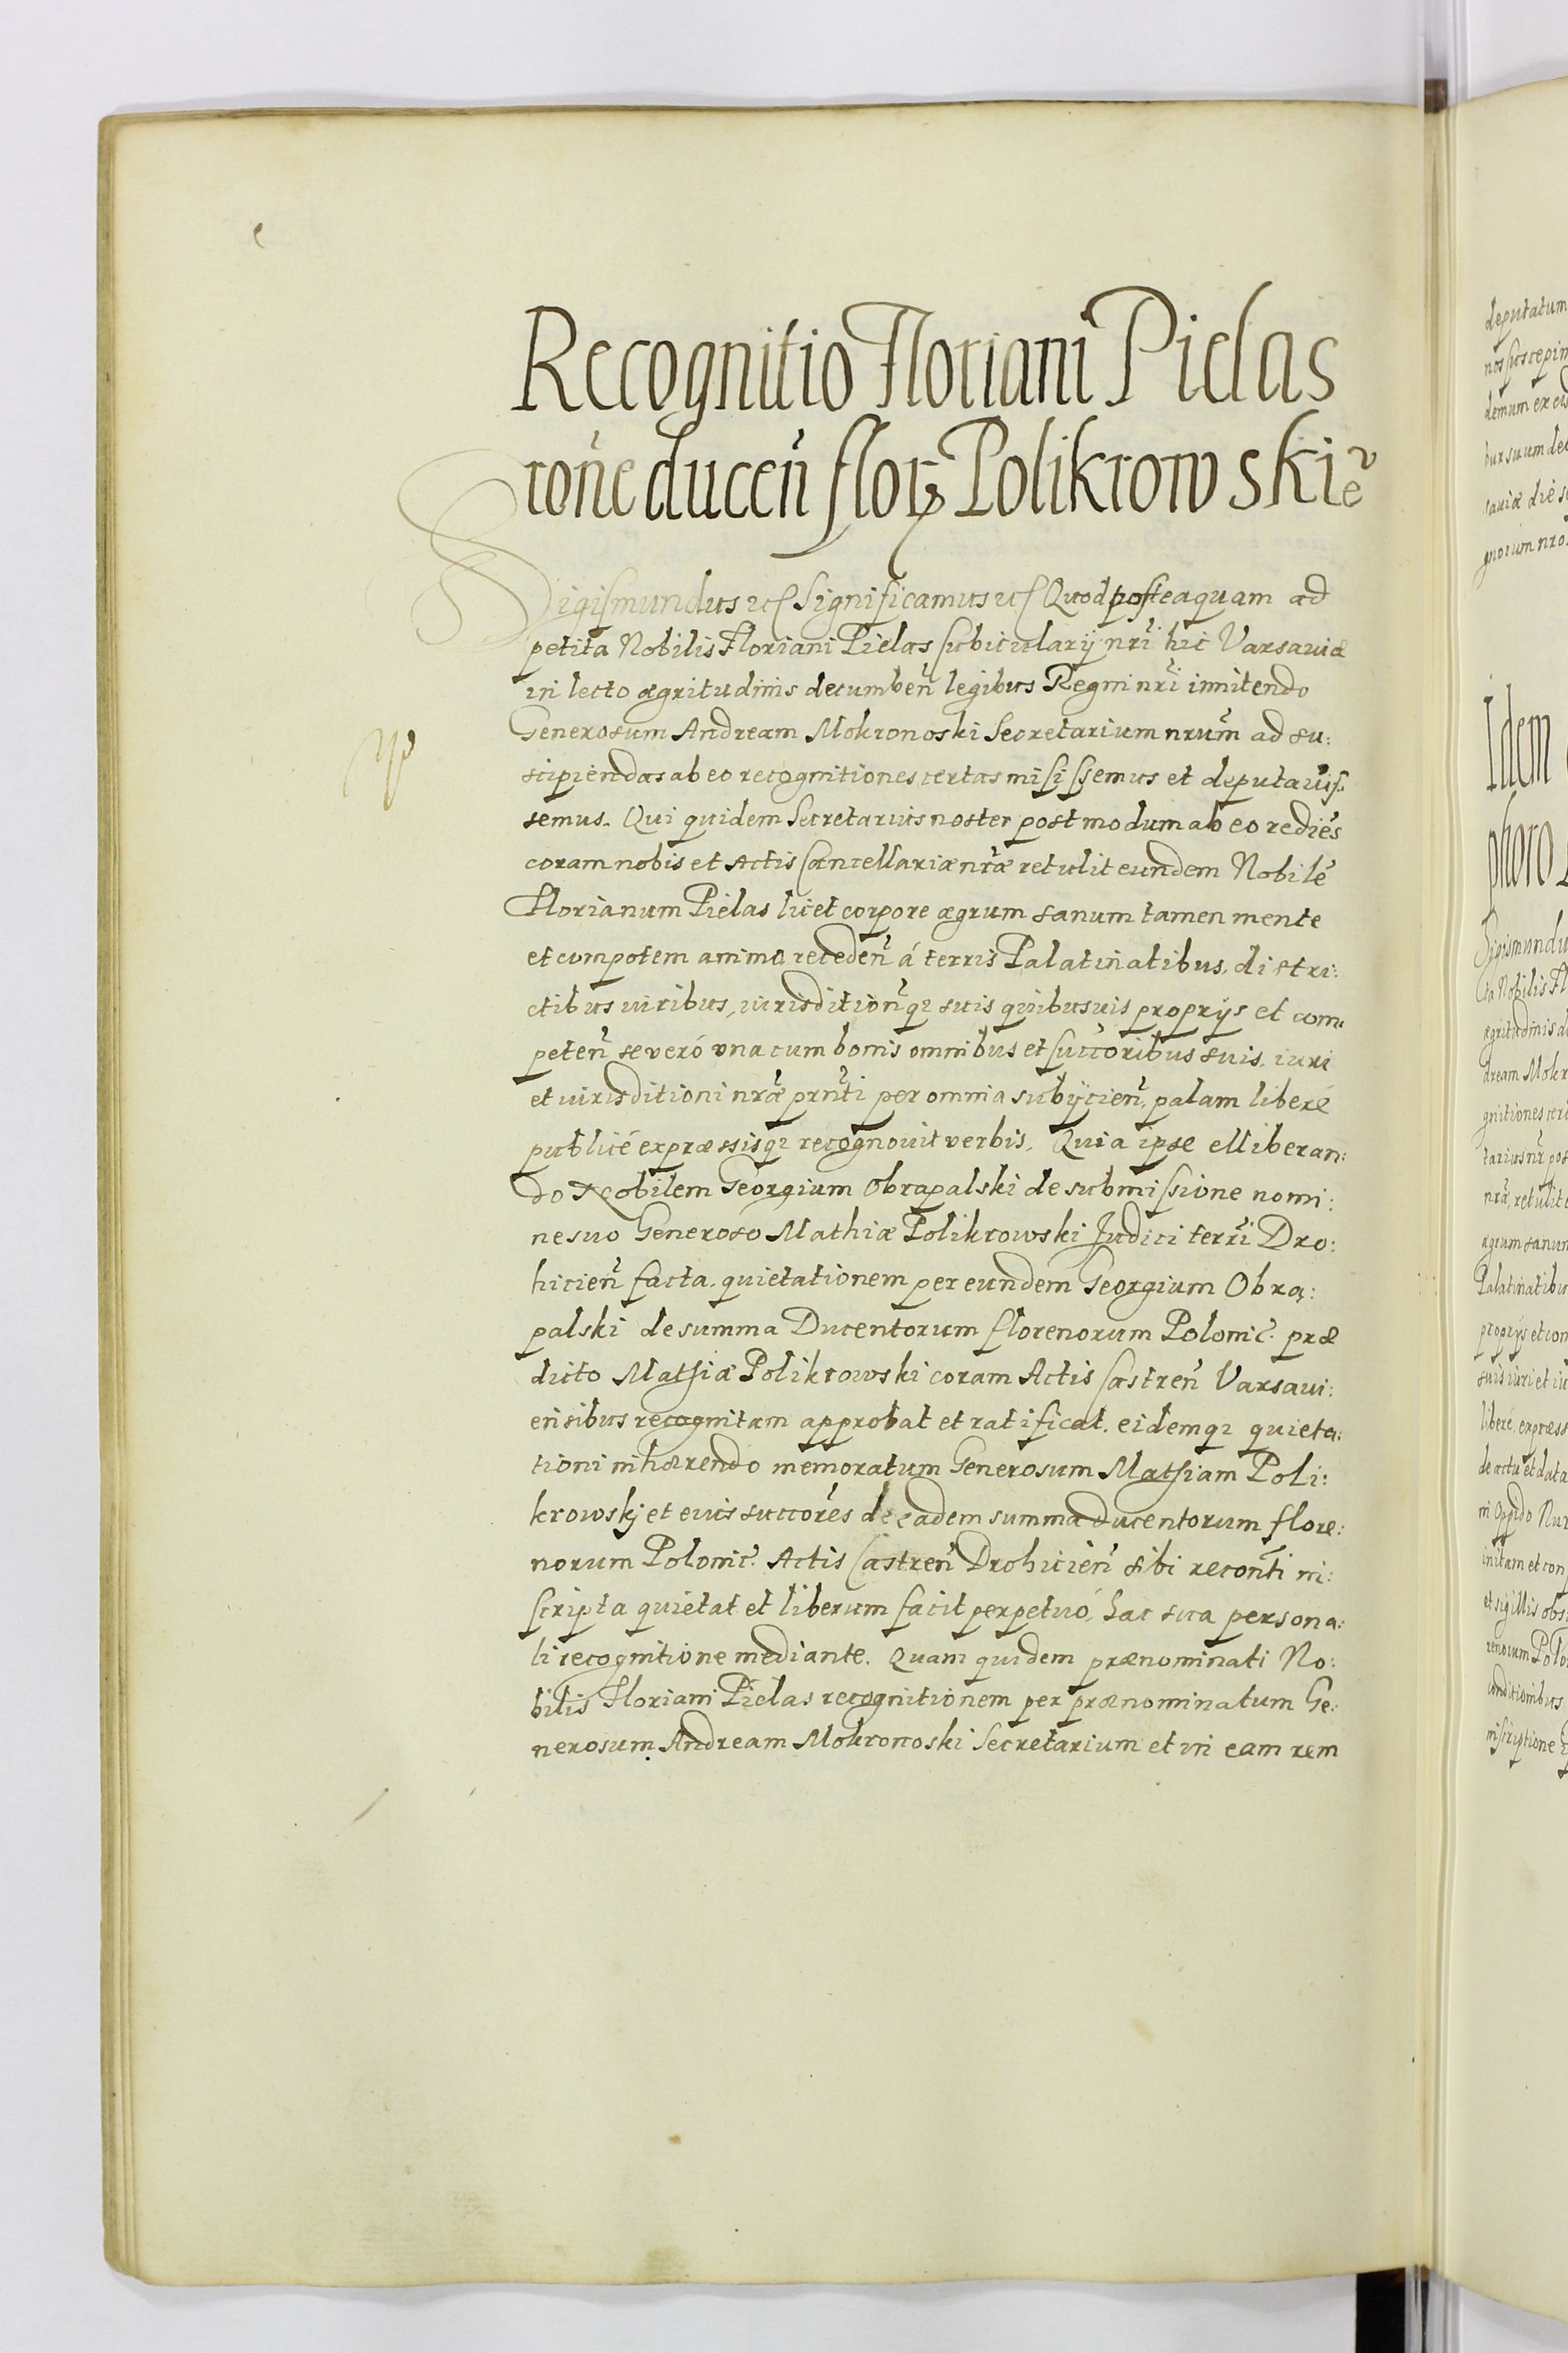 Recognitio Floriani Pielas
rōne ducen̄ flor Polikrowskie
Sigismundus etc Significamus etc Quod posteaquam ad
petita Nobilis Floriani Pielas Cubicularij nr̃i hic Varsauiæ
in lecto ægritudinis decumben̄ legibus Regni nr̃i innitendo
Generosum Andream Mokronoski Secretarium nrum̃ ad su:
scipiendas ab eo recognitiones certas misissemus et deputauis:
semus. Qui quidem Secretarius noster postmodum ab eo rediēs
coram nobis et Actis Cancellariæ nr̃æ retulit eundem Nobilē
Florianum Pielas licet corpore ægrum sanum tamen mente
et compotem animo, receden̄ á terris Palatinatibus, distri:
ctibus iuribus, iurisdition̄q; suis quibusuis proprijs et com:
peten̄ se veró vna cum bonis omnibus et succ̃oribus suis, iuri
et iurisditioni nr̃æ prn̄ti per omnia subijcien̄, palam liberé
publicé expræssisq; recognouit verbis. Quia ipse elliberan:
do Nobilem Georgium Obrapalski de submissione nomi:
ne suo Generoso Mathiæ Polikrowski Judici terr̃i Dro:
hicien̄ facta, quietationem per eundem Georgium Obra:
palski de summa Ducentorum florenorum Polonic̃. præ
dicto Mathiæ Polikrowski coram Actis Castren̄ Varsaui:
ensibus recognitam approbat et ratificat, eidemq; quieta:
tioni inhærendo memoratum Generosum Mathiam Poli:
krowskj et eius succor̃es de eadem summa Ducentorum flore:
norum Polonic̃. Actis Castren̄ Drohicien̄ sibi recon̄ti in:
scripta quietat et liberum facit perpetuó, hac sua persona:
li recognitione mediante. Quam quidem prænominati No:
bilis Floriani Pielas recognitionem per prænominatum Ge:
nerosum Andream Mokronoski Secretarium et in eam rem
deputatum
Idem
phoro
Sigismundu
ta Nobilis Fl
ægritudinis d
dream Mokr
Palatinatibu
proprijs et com
suis iuri et iu
liberé, expræss
de actu et data
in Oppido Nur
initam et con
et sigillis obs
renorum Polo
conditionibus
inscriptione